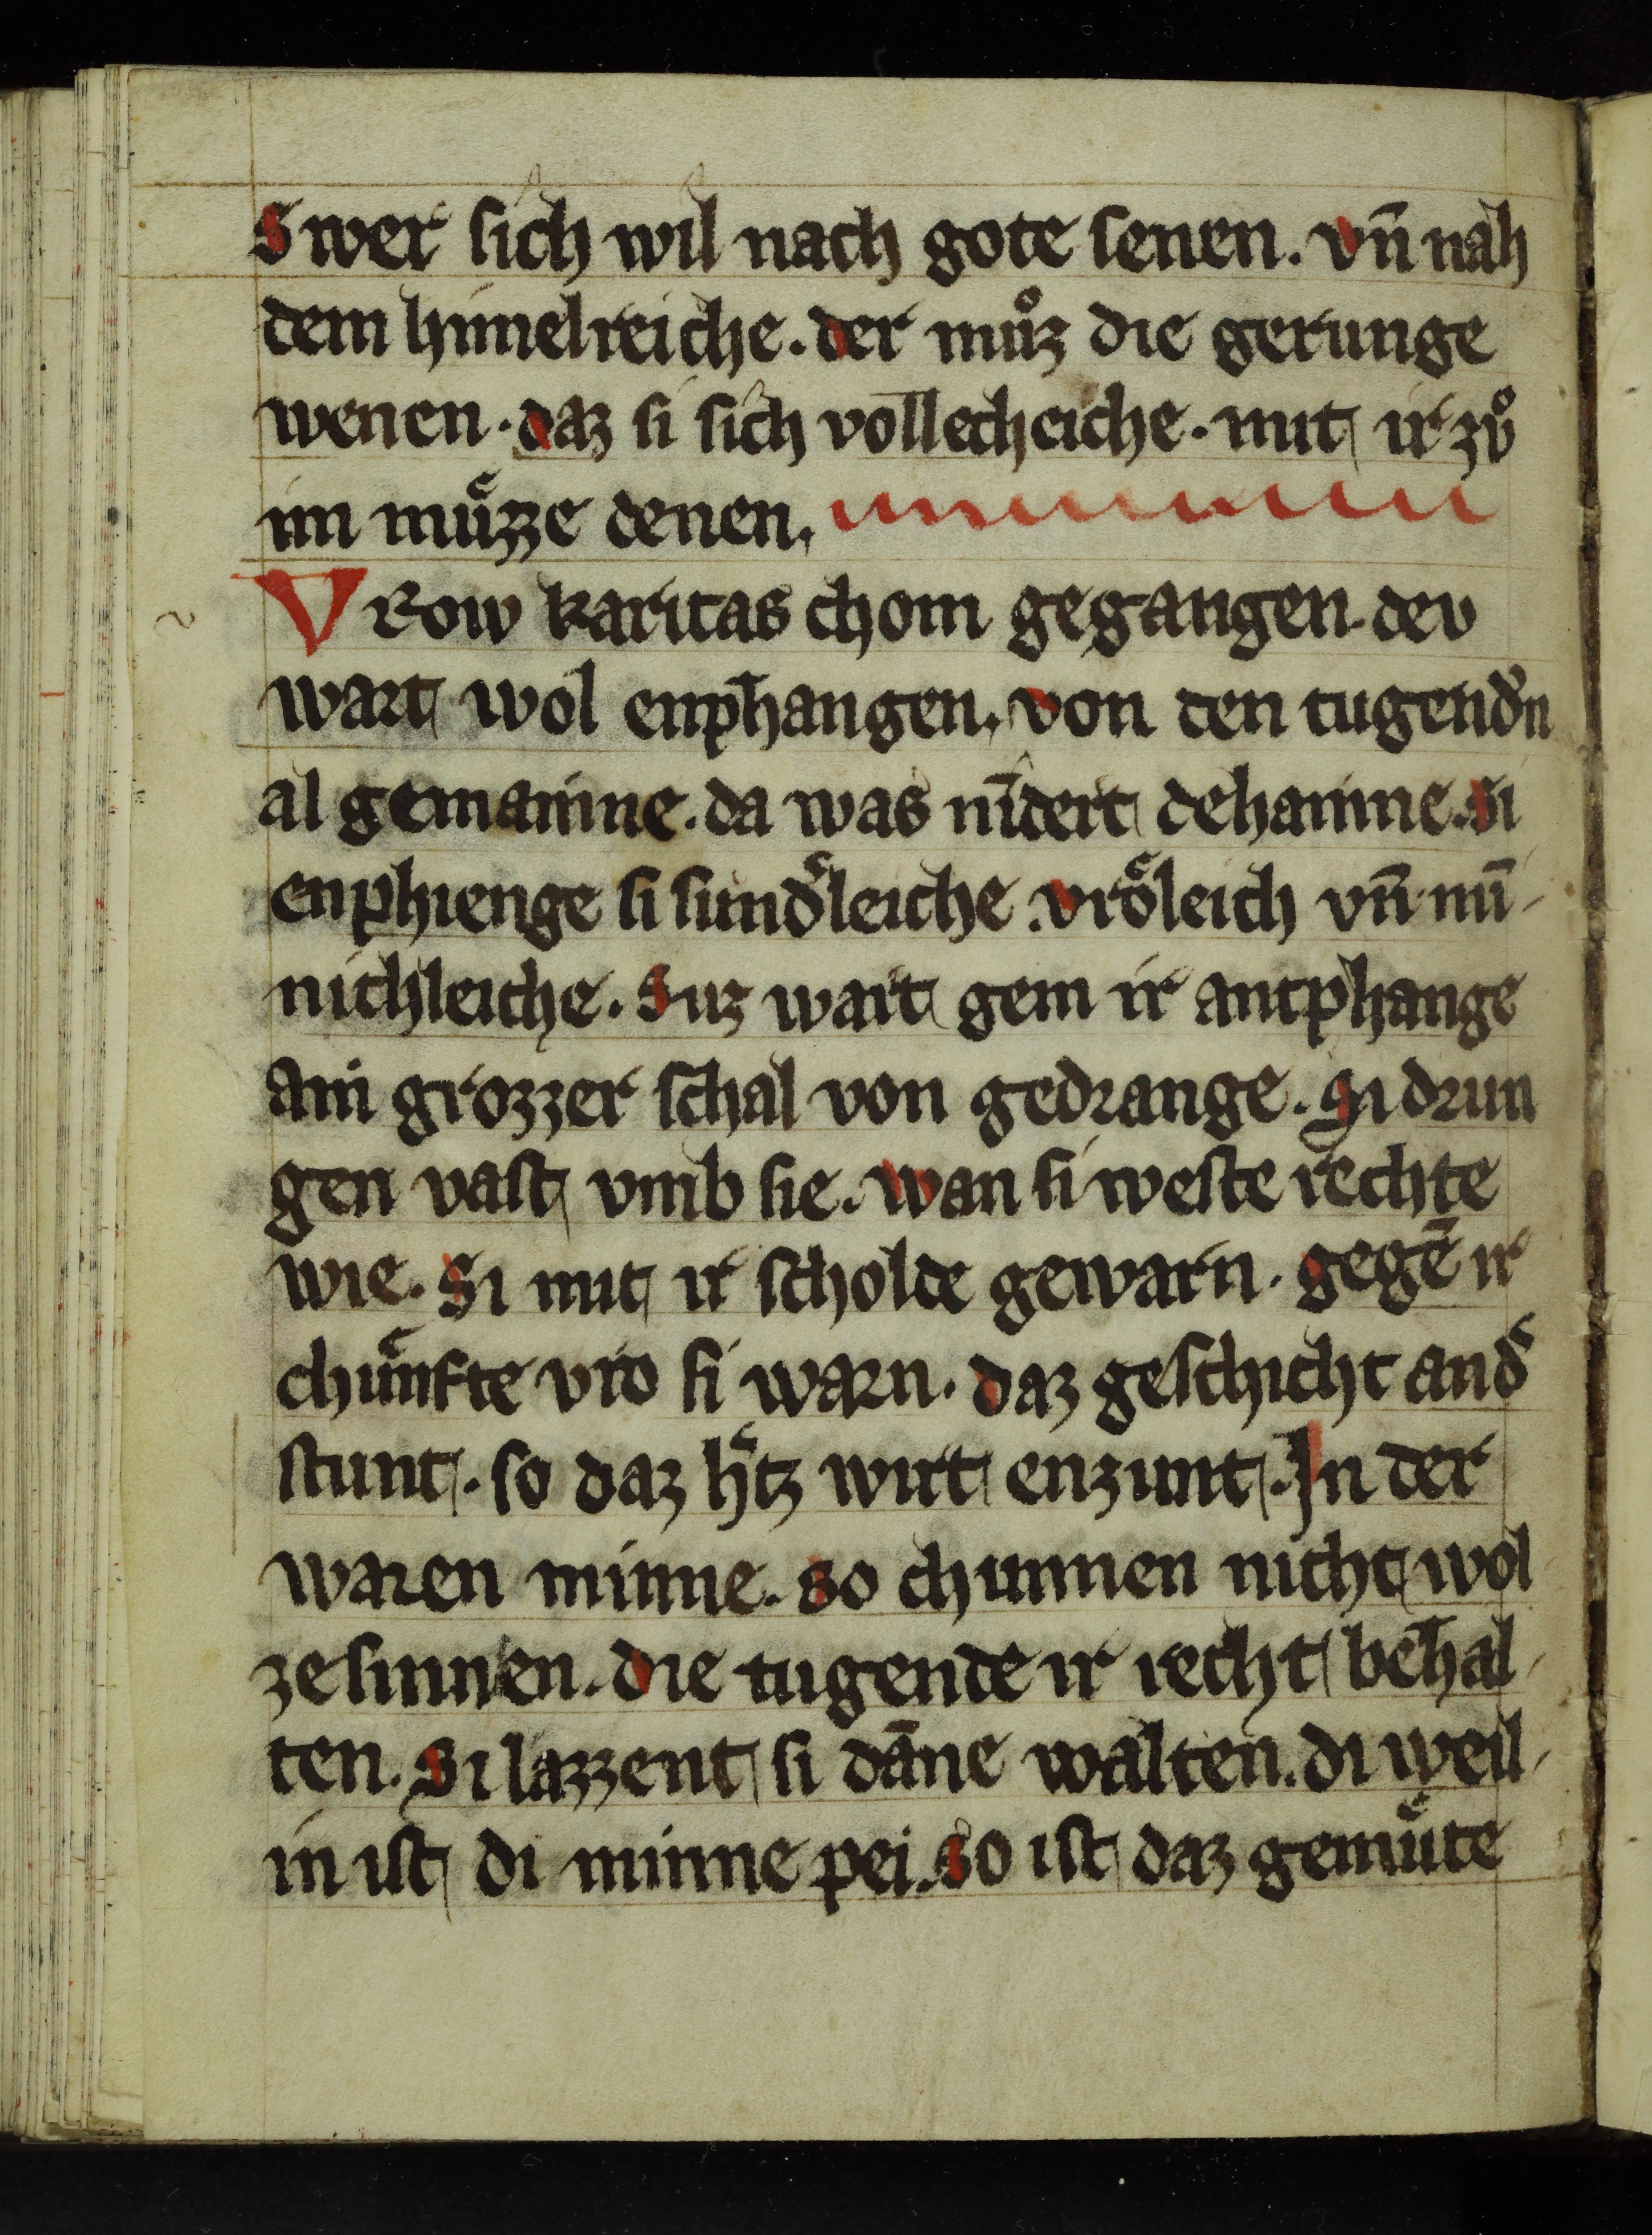 Swer sich wil nach gote senen. vn̄ nah
dem himelreiche. der můz die gerunge
wenen. daz si sich vollechͤiche. mit ir zv̊
im mu̍zze denen.
VRow karitas chom gegangen. dev
wart wol enphangen. von den tugendn̄
al gemainne. da was nīdert dehainne. Si
enphienge si sundˢleiche. vro̍leich vn̄ mī
nichleiche. Suz wart gem ir antphange
ain grozzer schal von gedrange. Si drun
gen vast vmb sie. wan si weste rechte
wie. Si mit ir scholde gewarn. gegē ir
chu̍nfte vro si warn. daz geschicht andˢ
stunt. so daz hˢtz wirt enzunt. In der
waren minne. so chunnen nicht wol
ze sinnen. die tugende ir recht behal
ten. Si lazzent si dāne walten. di weil
in ist di minne pei. so ist daz gemu̍te